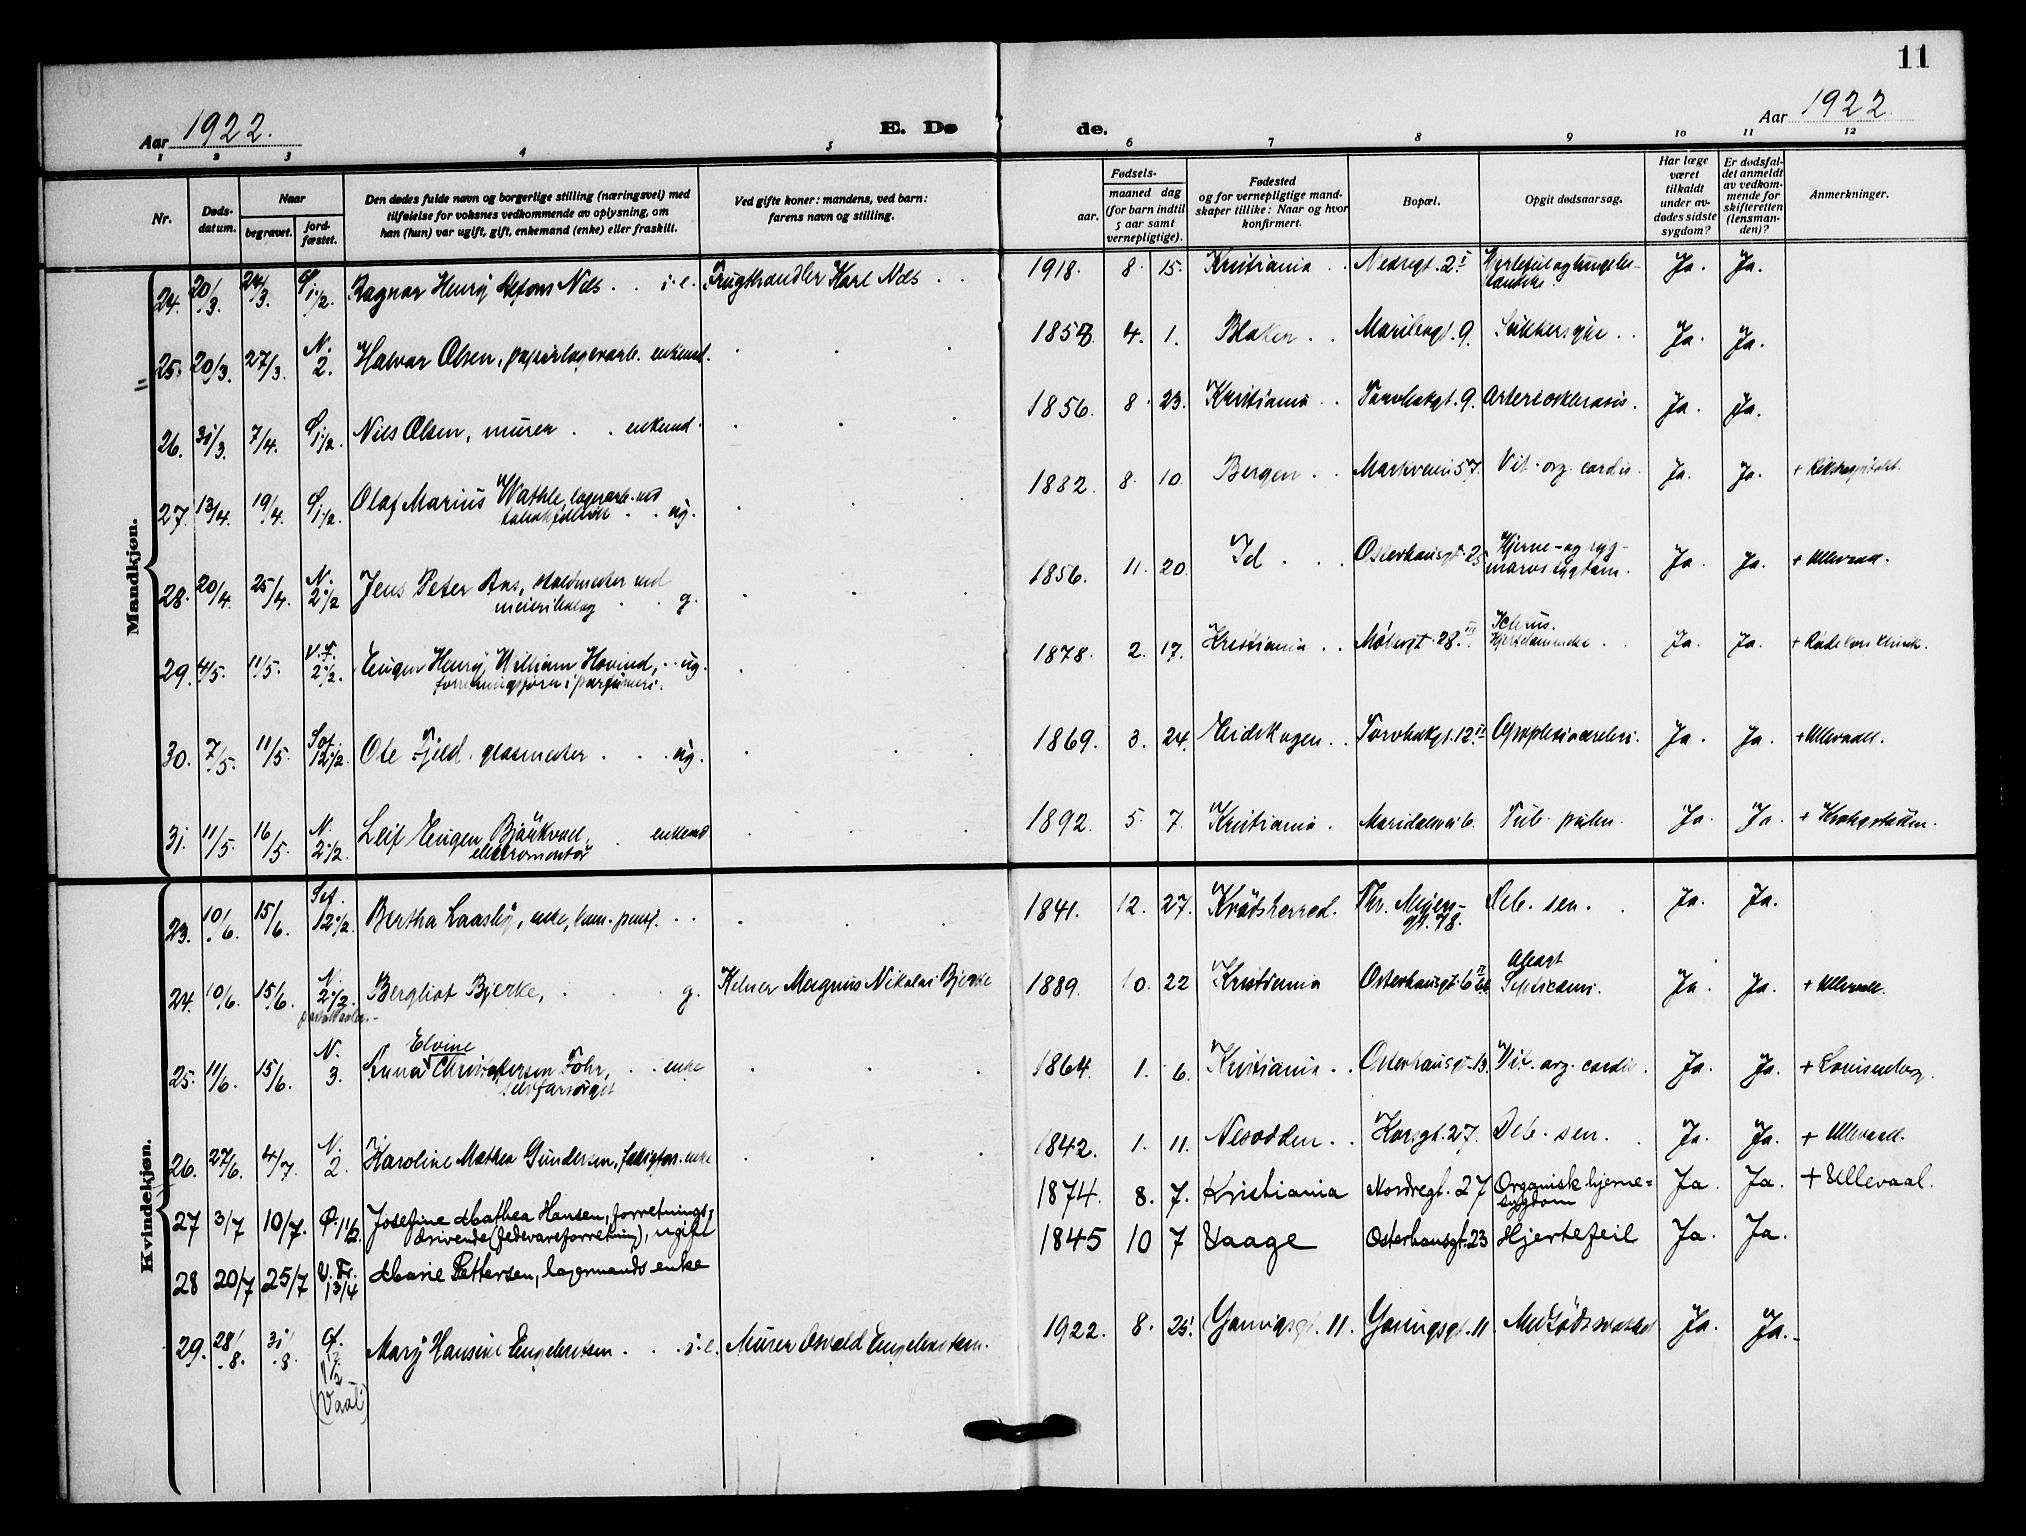 11
Aar 1922.
E. Dø
de.
Aar 1922
1 2 3 4 5 6 7 8 9 10 11 12
Nr.
Døds-
datum.
Naar
begravet.
jord-
fæstet.
Den dødes fulde navn og borgerlige stilling (næringsvei) med
tilføielse for voksnes vedkommende av oplysning, om
han (hun) var ugift, gift, enkemand (enke) eller fraskilt.
Ved gifte koner: mandens, ved barn:
farens navn og stilling.
Fødsels-
aar.
maaned dag
(for barn indtil
5 aar samt
vernepligtige).
Fødested
og for vernepligtige mand-
skaper tillike: Naar og hvor
konfirmert.
Bopæl.
Opgit dødsaarsag.
Har læge
været
tilkaldt
under av-
dødes sidste
sygdom?
Er dødsfal-
det anmeldt
av vedkom-
mende for
skifteretten
(lensman-
den)?
Anmerkninger.
Mandkjøn.
24. 20/3. 24/3. 1 1/2. Ragnar Henry Nils i.e. Frugthandler Karl Nils 1918. 8. 15. Kristiania Nedregt. 2 I Ja. Ja.
25. 20/3. 27/3. N. 2. Halvor Olsen, papirlagerarb. enkemd. 4. 1. Blaker Maribogt. 9. Sukkersyke Ja. Ja.
26. 31/3. 7/4. 1 1/2. Nils Olsen, murer enkemd. 1856. 8. 23. Kristiania Torvbakgt. 9. Arteriosklerosis. Ja. Ja.
27. 13/4. 19/4. 1 1/2. Olaf Marius Wathle, lagerarb. ved
ug. 1882. 8. 10. Bergen Markveien 57. Vit. org. cordis. Ja. Ja. + Rikshospitalet.
28. 20/4. 25/4. N. 2 1/2 Jens Peter Aas, staldmester ved
meieribolag g. 1856. 11. 20. Id Osterhausgt. 25 Hjerne- og ryg-
marvssygdom. Ja. Ja. + Ullevaal.
29. 4/5. 11/5. V. F. 2 1/2. Eugen Henry William Hovind, ug.
forretningsfører i parfumeri. 1878. 2. 17. Kristiania Møllergt. 28. III Icterus.
Ja. Ja. + Klinik.
30. 7/5. 11/5. Sof. 12 1/2. Ole Fjeld. glasmester ug. 1869. 3. 24. Eidskogen Torvbakgt. 12. Apoplexia cerebri. Ja. Ja. + Ullevaal.
31. 11/5. 16/5. N. 2 1/2. Leif Eugen
elektromontør enkemd 1892. 5. 7. Kristiania Maridalsvei 6. Tub. pulm. Ja. Ja. + Krohgstøtten.
Kvindekjøn.
23. 10/6. 15/6. 12 1/2. Bertha Laasby, enke, kom. pens. 1841. 12. 27. Krødsherred. Thv. Meyers-
gt. 78. Deb. sen. Ja. Ja.
24. 10/6. 15/6. N. 2 1/2. Bergliot Bjerke, g. Kelner Magnus Nikolai Bjerke 1889. 10. 22 Kristiania Osterhausgt. 6 Abort
Septicæmi. Ja. Ja. + Ullevaal.
25. 11/6. 15/6. N. 3. Anna Elvine Christofersen Fohr, enke
selvforsørget 1864. 1. 6. Kristiania Osterhausgt. 13. Vit. org. cordis. Ja. Ja. + Louisenberg.
26. 27/6. 4/7. N. 2. Karoline Mathea Gundersen, enke 1842. 1. 11. Nesodden Korsgt. 27. Deb. sen. Ja. Ja. + Ullevaal.
27 3/7 10/7. Ø. 1 1/2. Josefine Mathea Hansen, forretnings-
drivende (fedevareforretning), ugift 1874. 8. 7. Kristiania Nordregt. 27 Organisk hjerne-
sygdom Ja. Ja. + Ullevaal.
28 20/7 25/7 V. Fr. 1 3/4 Marie Pettersen, lagermands enke 1845 10 7 Vaage Osterhausgt. 23 Hjertefeil Ja. Ja.
29. 28/8. 31/8. 1 1/2 (Vaal) Mary Hansine Engebretsen i.e. Murer Osvald Engebretsen. 1922. 8. 25. 11. 11. Ja. Ja.